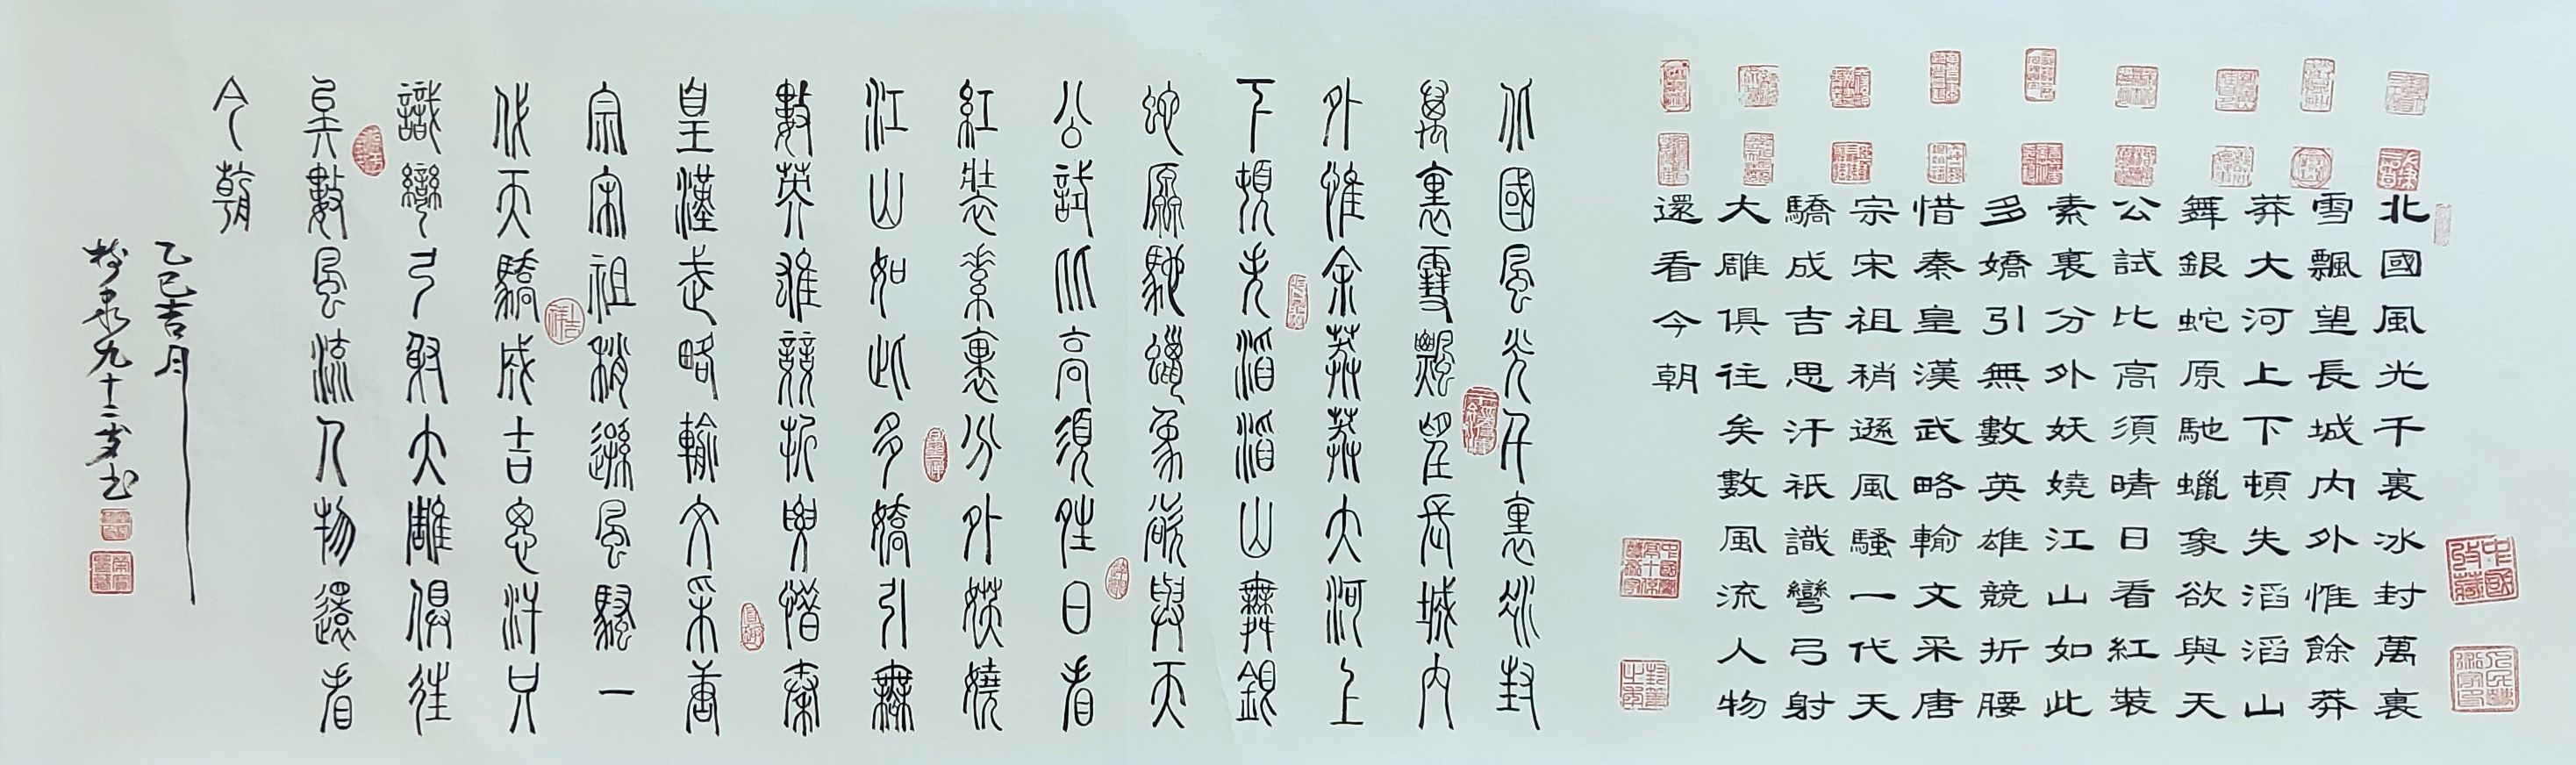 北國風光千裏冰封萬裏
雪飄望長城内外惟餘莽
莽大河上下頓失滔滔山
舞銀蛇原馳蠟象欲與天
公試比高須晴日看紅裝
素裏分外妖嬈江山如此
多嬌引無數英雄競折腰
惜秦皇漢武略輸文采唐
宗宋祖稍遜風騷一代天
驕成吉思汗祇識彎弓射
大雕俱往矣數風流人物
還看今朝
中國收藏
北國風光千裏冰封
萬裏雪飄望長城内
外惟余莽莽大河上
下頓失滔滔山舞銀
蛇原馳蠟象欲與天
公試比高須晴日看
紅裝素裹分外妖嬈
江山如此多嬌引無
數英雄競折腰惜秦
皇漢武略輸文采唐
宗宋祖稍遜風騷一
代天驕成吉思汗只
識彎弓射大雕俱往
矣數風流人物還看
今朝
乙巳吉月
樹泉九十二岁书